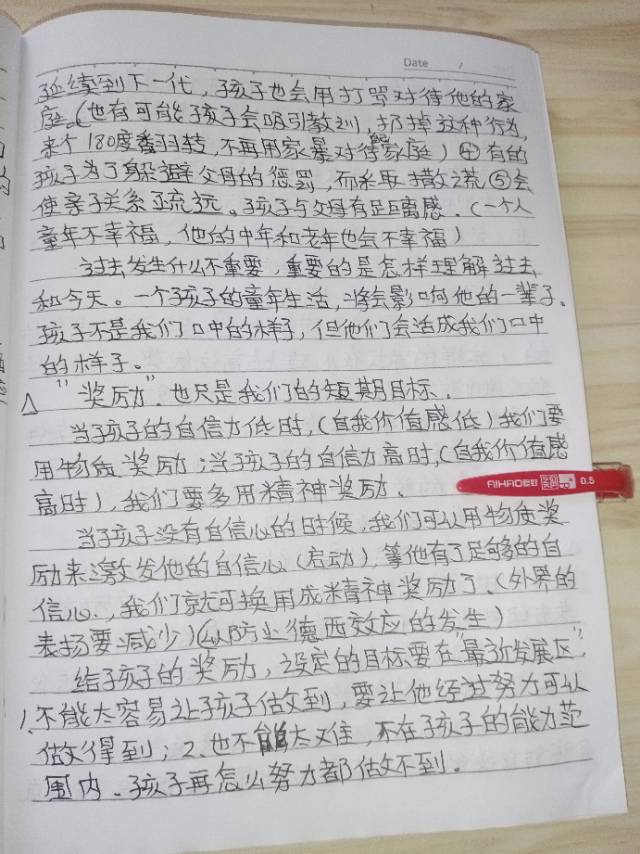 Date /
延续到下一代，孩子也会用打骂对待他的家
庭。(也有可能孩子会吸引教训，扔掉这种行为，
来个180度番羽转，不再用家暴对待家庭）④有的
孩子为了躲避父母的惩罚，而采取撒谎⑤会
使亲子关系疏远。孩子与父母有距离感.（一个人
童年不幸福，他的中年和老年也会不幸福）
过去发生什么不重要，重要的是怎样理解过去
和今天。一个孩子的童年生活，将会影响他的一辈子。
孩子不是我们口中的样子，但他们会活成我们口中
的样子。
△"奖励"也只是我们的短期目标.
当孩子的自信力低时，(自我价值感低）我们要
用物质奖励；当孩子的自信力高时，(自我价值感
高时)，我们要多用精神奖励.
AIHAO 0.5
当孩子没有自信心的时候，我们可以用物质奖
励来激发他的自信心（启动），等他有了足够的自
信心.，我们就可换用成精神奖励了、(外界的
表扬要减少)(以防止德西效应的发生）
给孩子的奖励，设定的目标要在"最近发展区"，
1.不能太容易让孩子做到，要让他经过努力可以
做得到；2、也不能太难，不在孩子的能力范
围内、孩子再怎么努力都做不到.